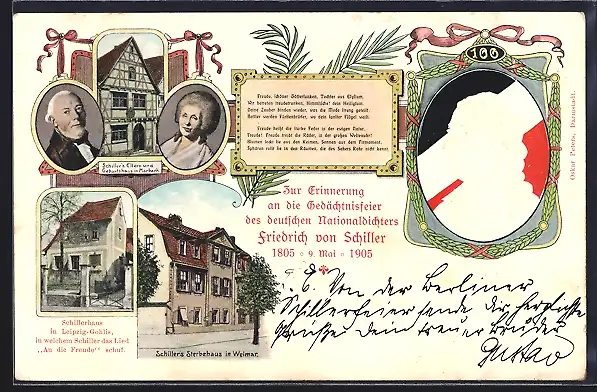 100
Freude, schöner Götterfunken, Tochter aus Elysium,
Wir betreten freudetrunken, Himmlische! dein Heiligtum.
Deine Zauber binden wieder, was die Mode streng geteilt:
Bettler werden Fürstenbrüder, wo dein sanfter Flügel weilt.
Freude heißt die starke Feder in der ewigen Natur.
Freude! Freude treibt die Räder, in der großen Weltenuhr!
Blumen lockt sie aus den Keimen, Sonnen aus dem Firmament,
Sphären rollt sie in den Räumen, die des Sehers Rohr nicht kennt.
Schiller's Eltern und
Geburtshaus in Marbach
Zur Erinnerung
an die Gedächtnisfeier
des deutschen Nationaldichters
Friedrich von Schiller
1805 9. Mai 1905
Schillerhaus
in Leipzig-Gohlis,
in welchem Schiller das Lied
„An die Freude" schuf.
Schillers Sterbehaus in Weimar.
Oskar Peters, Darmstadt.
Von der Berliner
Schillerfeier sende dir herzlichste
Grüße dein treuer Bruder
Gustav